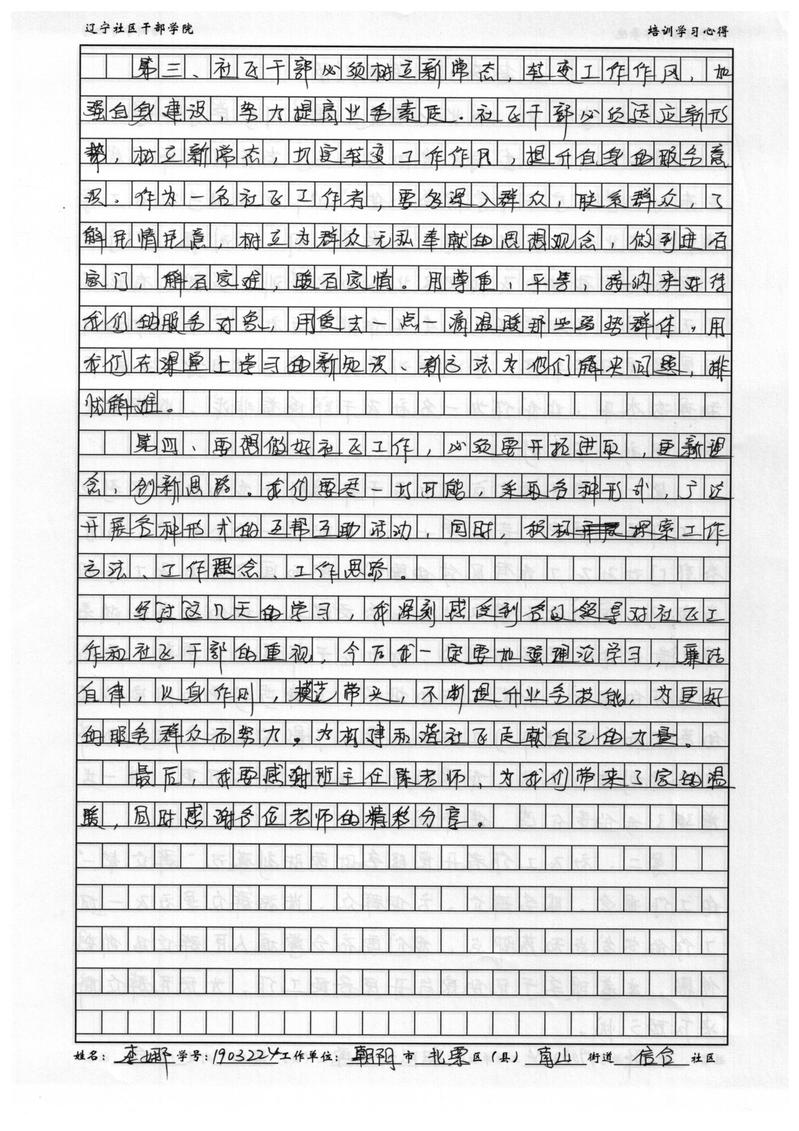 辽宁社区干部学院 培训学习心得
第三、社区干部必须树立新常态，转变工作作风，加
强自身建设，努力提高业务素质。社区干部必须适应新形
势，树立新常态，切实转变工作作风，提升自身的服务意
识。作为一名社区工作者，要多深入群众，联系群众，了
解民情民意，树立为群众无私奉献的思想观念，做到进百
家门，解百家难，暖百家情。用尊重、平等，接纳来对待
我们的服务对象，用爱去一点一滴温暖那些弱势群体，用
我们在课堂上学习的新知识、新方法为他们解决问题，排
忧解难。
第四、要想做好社区工作，必须要开拓进取，更新观
念，创新思路。我们要尽一切可能，采取各种形式，广泛
开展各种形式的互帮互助活动，同时，积极探索工作
方法、工作理念、工作思路。
经过这几天的学习，我深刻感受到各级领导对社区工
作和社区干部的重视，今后我一定要加强理论学习，廉洁
自律，以身作则，模范带头，不断提升业务技能，为更好
的服务群众而努力。为构建和谐社区贡献自己的力量。
最后，我要感谢班主任陈老师，为我们带来了家的温
暖，同时感谢各位老师的精彩分享。
姓名：李娜 学号：1903224 工作单位：朝阳市 北票区（县） 南山街道 信合社区